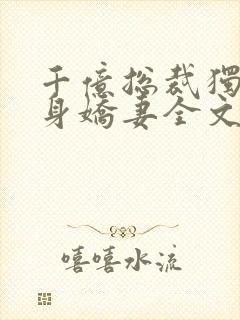 千億總裁獨
身嬌妻全文
嘻嘻水流